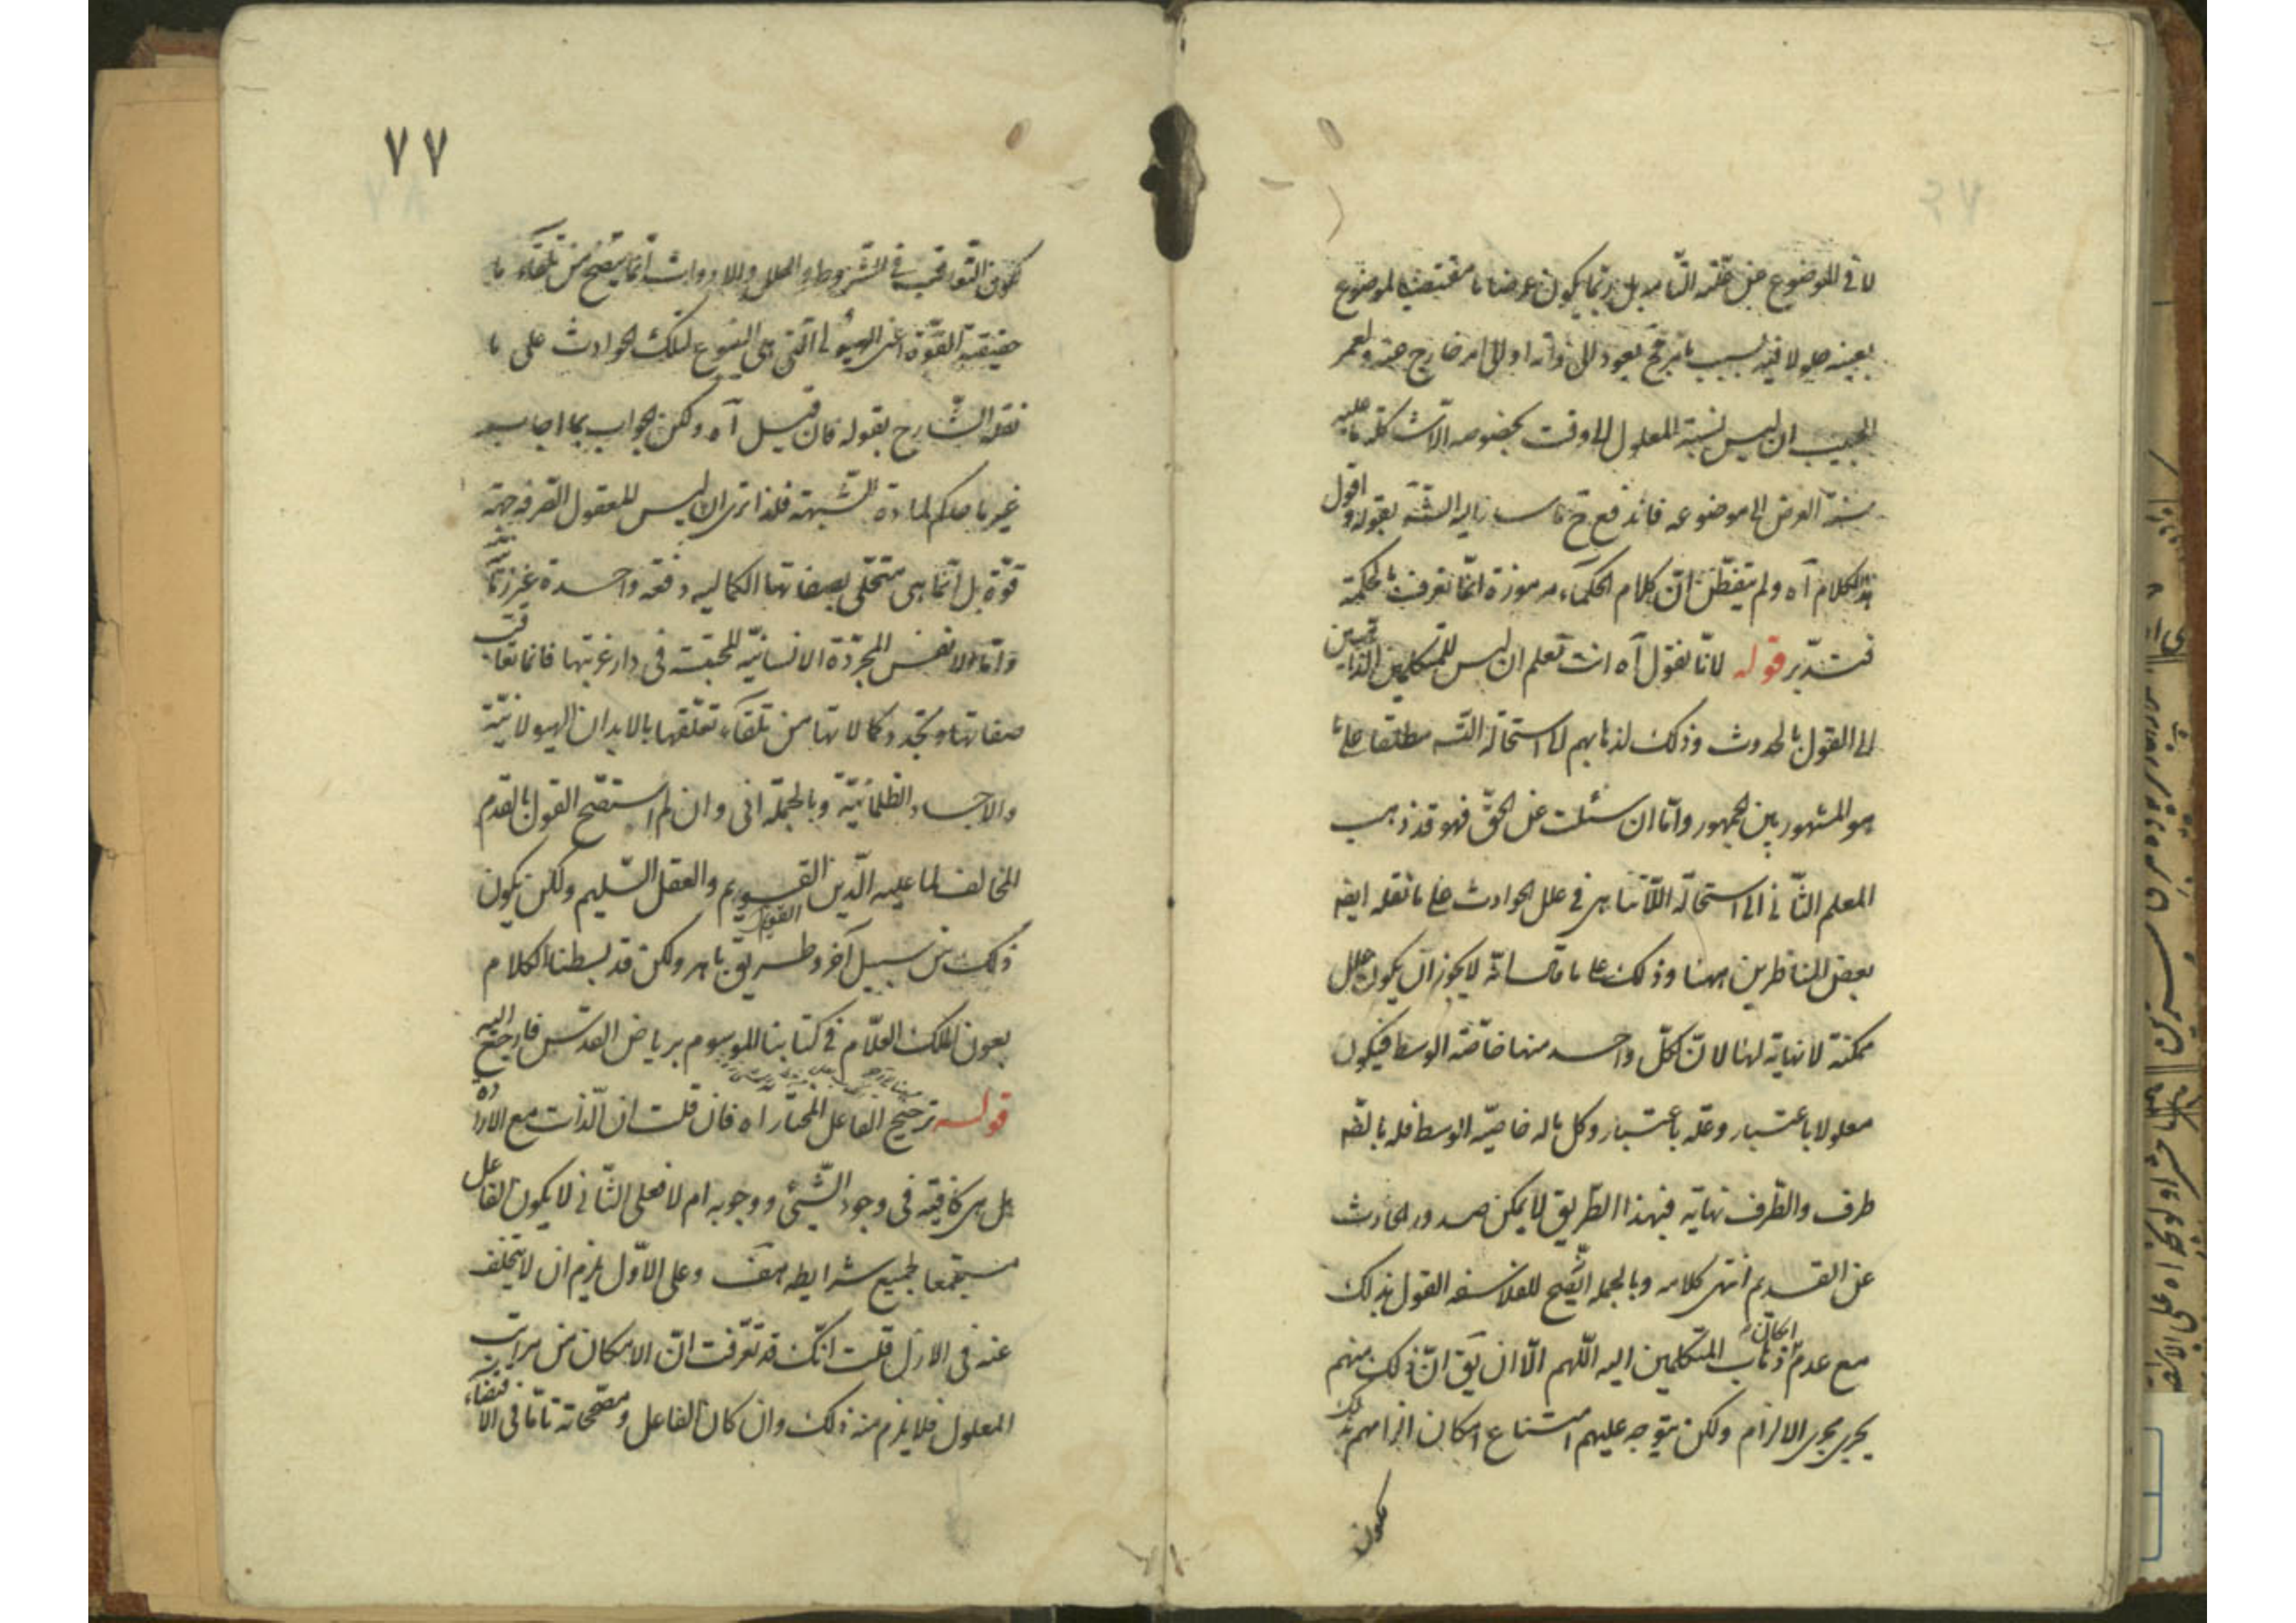 لا فى الموضوع عن علته التامة بل ربما يكون عرضا ما مقتضيا لموضوع
بعينه حلولا فيه بسبب ما يرجح يعود الى ذاته او الى امر خارج عنه ولعمر
المجيب ان ليس نسبة المعلول الى وقت بخصوصه الا كشاكلة ما عليه
نسبة العرض الى موضوعه فاندفع ح ما يه الش بقوله واقول
هذا الكلام آه ولم يتفطن ان كلام الحكماء مرموزة انما تعرف بالحكمة
فتدبر قوله لانا نقول آه انت تعلم ان ليس للمتكلمين الذاهبين
الى القول بالحدوث وذلك لذهابهم الى استحالة التس مطلقا على ما
هو المشهور بين الجمهور واما ان سئلت عن الحق فهو قد ذهب
المعلم الثانى الى استحالة اللاتناهى فى علل الحوادث على ما نقله ايضا
بعض الناظرين ههنا وذلك على ما قال انه لا يجوز ان يكون علل
ممكنة لا نهاية لها لان لكل واحد منها خاصة الوسط فيكون
معلولا باعتبار وعلة باعتبار وكل ما له خاصية الوسط فله بالضه
طرف والطرف نهاية فبهذا الطريق لا يمكن صدور الحادث
عن القديم انتهى كلامه وبالجملة الصح للفلاسفة القول بذلك
مع عدم امكان ذهاب المتكلمين اليه اللهم الا ان يق ان ذلك منهم
يجرى مجرى الالزام ولكن يتوجه عليهم امتناع امكان الزامهم بذلك
كون
٧٧
كون التعاقب فى الشروط والعلل والادوات انما يتصحح من تلقاء ما
حقيقة القوة اعنى الهيولى التى هى الينبوع لتلك الحوادث على ما
نقله الشارح بقوله فان قيل آه ولكن الجواب بما اجاب
غير حاكم لمادة الشبهة فلذا ترى ان ليس للعقول الصرفة جهة
قوة بل انما هى متحلى بصفاتها الكمالية دفعة واحدة غير زمانية
واما الانفس المجردة الانسانية المحتبسة فى دار غربتها فانما تعاقب
صفاتها وتجدد كمالاتها من تلقاء تعلقها بالابدان الهيولانية
والاجساد الظلمانية وبالجملة انى وان لم استصح القول بالقدم
المخالف لما عليه الدين القويم والعقل السليم ولكن يكون
القويم
ذلك من سبيل آخر وطريق باهر ولكن قد بسطنا الكلام
بعون الملك العلام فى كتابنا الموسوم برياض القدس فارجع اليه
قوله ترجيح الفاعل المختار اه فان قلت ان الذات مع الارادة
هل هى كافية فى وجود الشيئ ووجوبه ام لا فعلى الثانى لا يكون الفاعل
مستجمعا لجميع شرايطه هف وعلى الاول يلزم ان لا يتخلف
عنه فى الازل قلت انك قد تعرفت ان الامكان من مراتب
المعلول فلا يلزم منه ذلك وان كان الفاعل ومصححاته تاما فى الاقتضاء